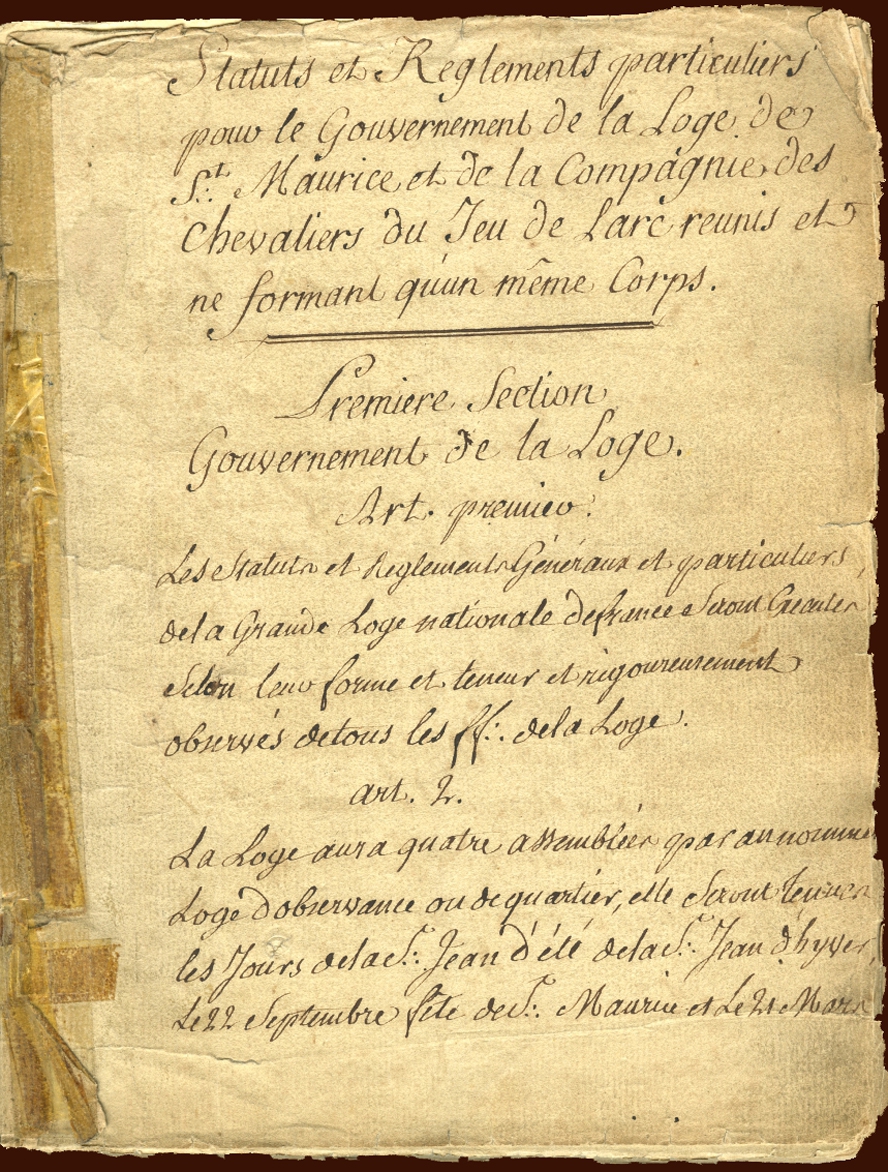 Statuts et Reglements particuliers
pour le Gouvernement de la Loge de
St. Maurice et de la Compagnie des
Chevaliers du Jeu de Larc reunis et
ne formant qu'un même Corps.
Premiere Section
Gouvernement de la Loge.
Art. premier.
Les Statuts et Reglements Généraux et particuliers,
de la Grande Loge nationale de france Seront
Selon leur forme et teneur et rigoureusement
observés de tous les ff∴ de la Loge.
art. 2.
La Loge aura quatre assemblées par an nommée
Loge d'observance ou de quartier, elle Seront tenues
les Jours de la St. Jean d'été de la St. Jean d'hyver,
Le 22 Septembre fête de St. Maurice et Le 21 Mars